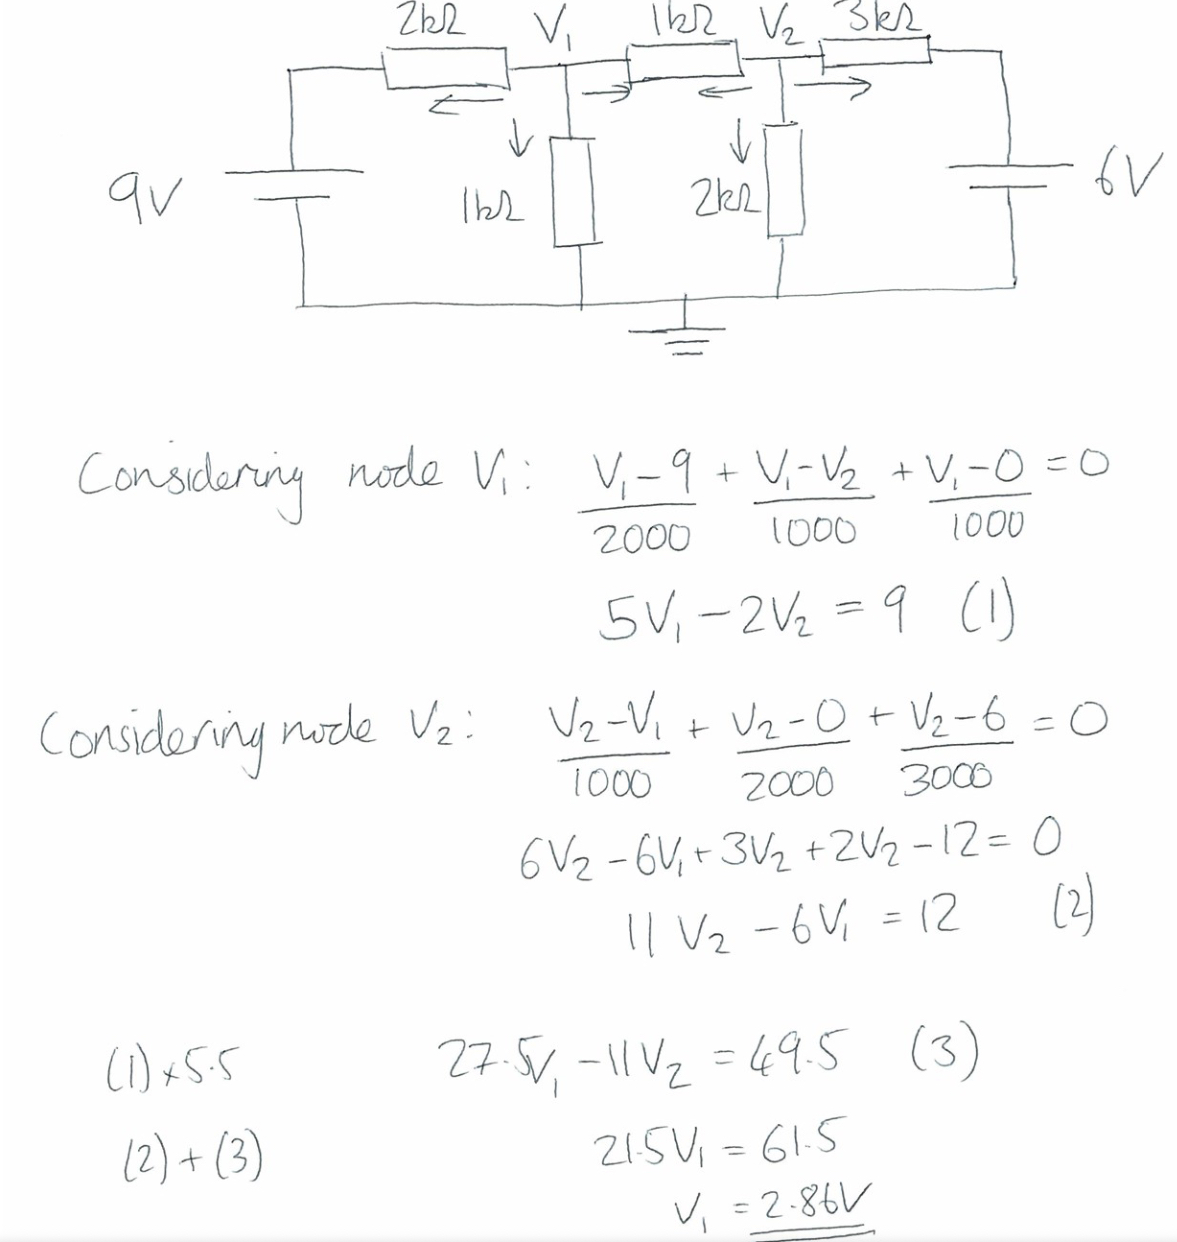 2kΩ V₁ 1kΩ V₂ 3kΩ
9V 1kΩ 2kΩ 6V
Considering node V₁: (V₁-9)/2000 + (V₁-V₂)/1000 + (V₁-0)/1000 = 0
5V₁ - 2V₂ = 9 (1)
Considering node V₂: (V₂-V₁)/1000 + (V₂-0)/2000 + (V₂-6)/3000 = 0
6V₂ - 6V₁ + 3V₂ + 2V₂ - 12 = 0
11V₂ - 6V₁ = 12 (2)
(1) × 5.5 27.5V₁ - 11V₂ = 49.5 (3)
(2) + (3) 21.5V₁ = 61.5
V₁ = 2.86V